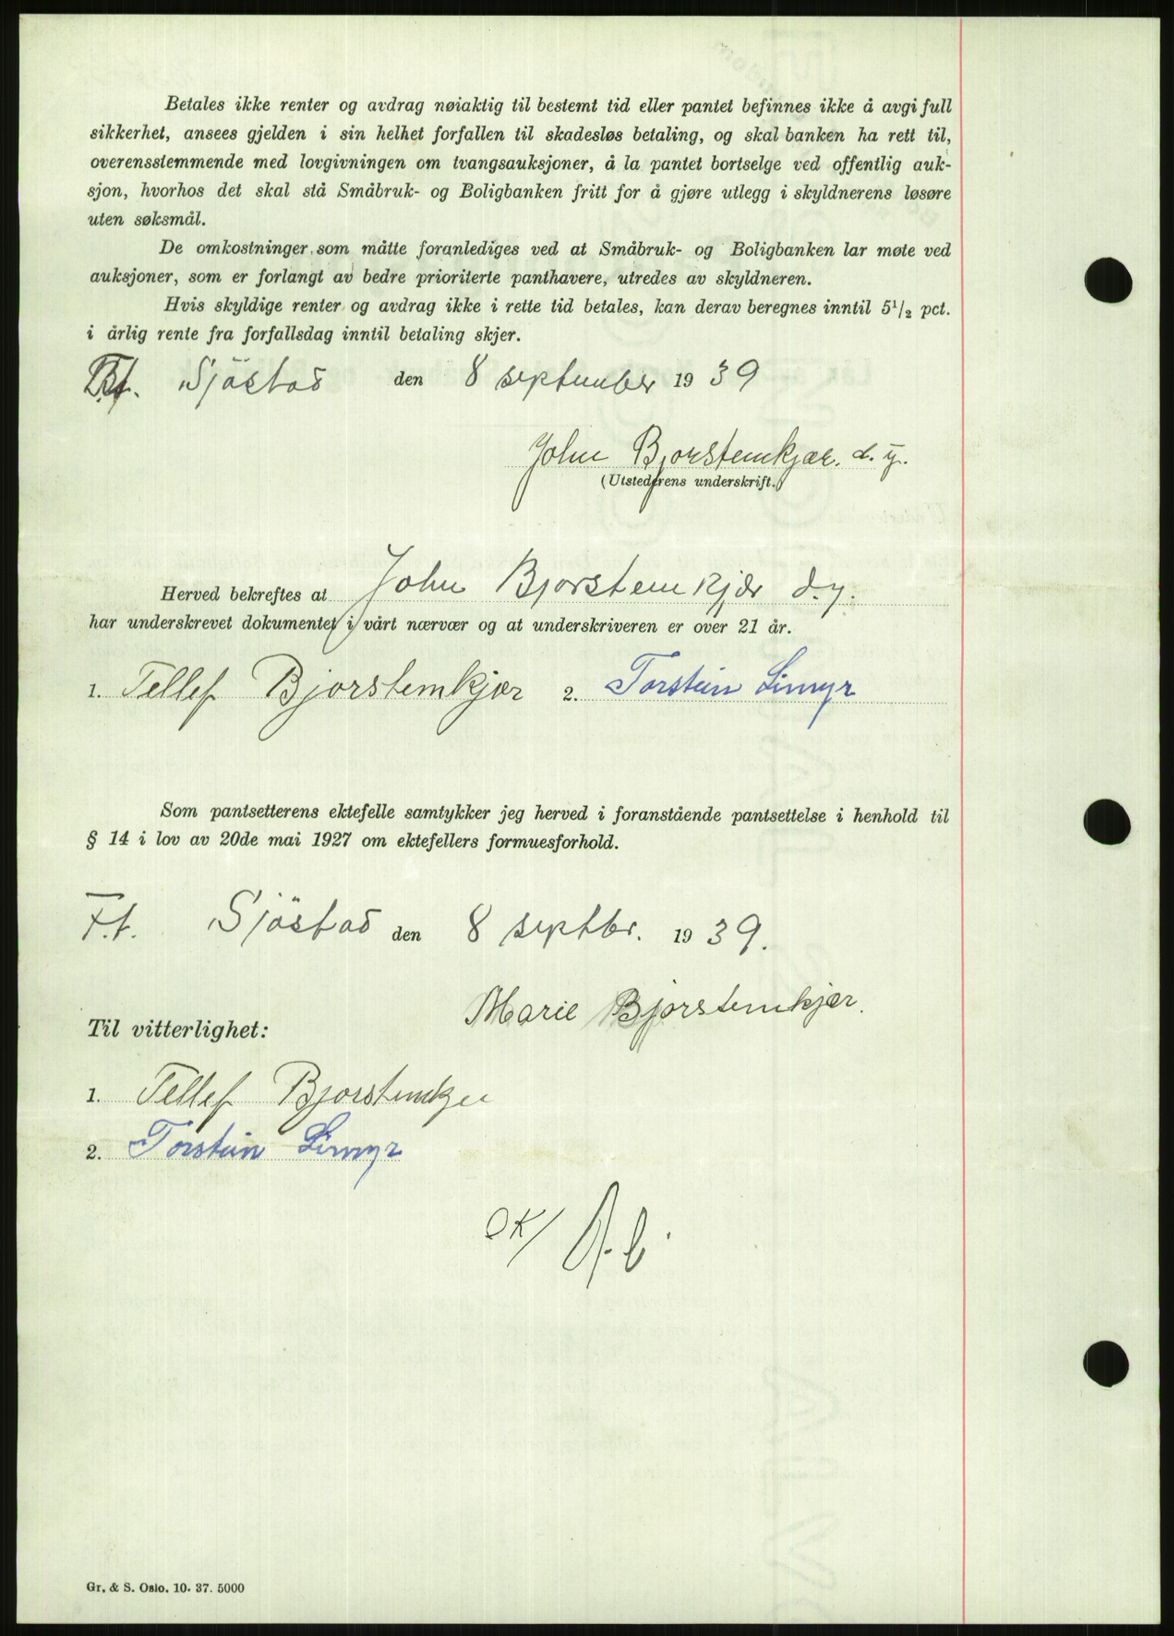 Betales ikke renter og avdrag nøiaktig til bestemt tid eller pantet befinnes ikke å avgi full
sikkerhet, ansees gjelden i sin helhet forfallen til skadesløs betaling, og skal banken ha rett til,
overensstemmende med lovgivningen om tvangsauksjoner, å la pantet bortselge ved offentlig auk-
sjon, hvorhos det skal stå Småbruk- og Boligbanken fritt for å gjøre utlegg i skyldnerens løsøre
uten søksmål.
De omkostninger som måtte foranlediges ved at Småbruk- og Boligbanken lar møte ved
auksjoner, som er forlangt av bedre prioriterte panthavere, utredes av skyldneren.
Hvis skyldige renter og avdrag ikke i rette tid betales, kan derav beregnes inntil 5 1/2 pct.
i årlig rente fra forfallsdag inntil betaling skjer.
Sjöstad den 8 september 1939
John Bjorstemkjær. d. y.
(Utstederens underskrift.)
Herved bekreftes at John Bjorstemkjær d.y.
har underskrevet dokumentet i vårt nærvær og at underskriveren er over 21 år.
1. Tellef Bjorstemkjær 2. Torstein Limyr
Som pantsetterens ektefelle samtykker jeg herved i foranstående pantsettelse i henhold til
§ 14 i lov av 20de mai 1927 om ektefellers formuesforhold.
F.t. Sjöstad den 8 septbr. 1939.
Marie Bjorstemkjær.
Til vitterlighet:
1. Tellef Bjorstemkjær
2. Torstein Limyr
OK/
Gr. & S. Oslo. 10. 37. 5000